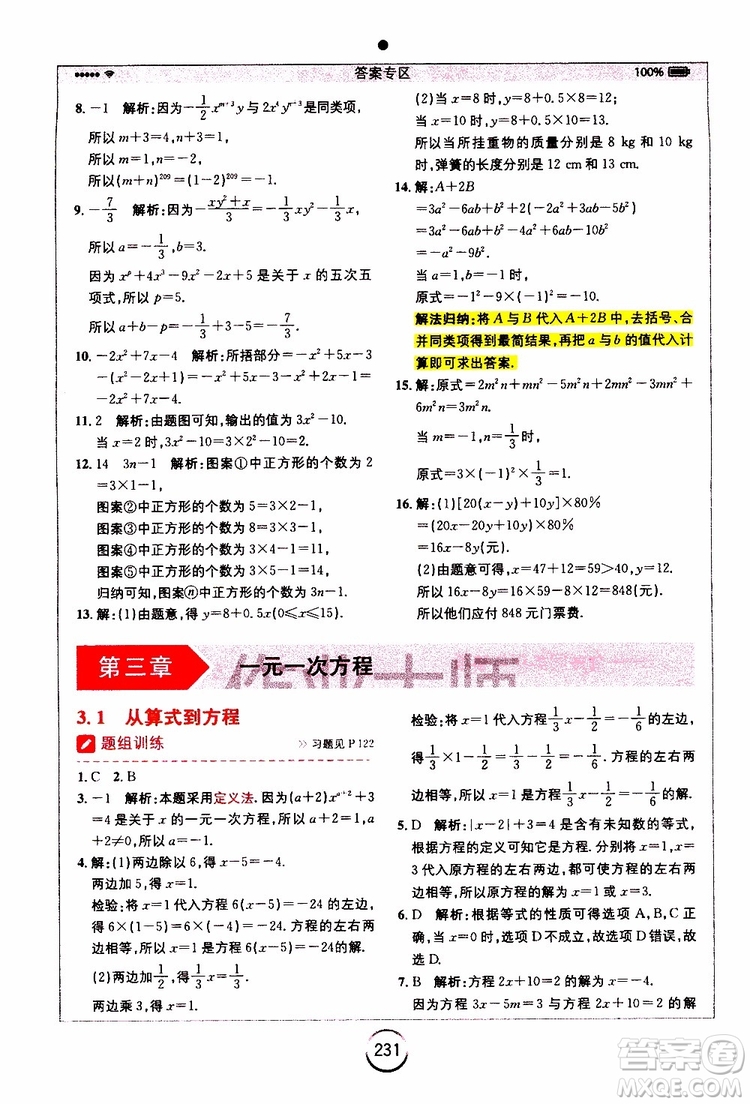 答案专区
100%
8. −1 解析:因为−\frac{1}{2}x^{m+3}y与2x^{4}y^{n+3}是同类项,
所以 m+3=4,n+3=1,
所以 m=1,n=−2,
所以(m+n)^{209}=(1−2)^{209}=−1.
9. −\frac{7}{3} 解析:因为−\frac{xy^{2}+x}{3}=−\frac{1}{3}xy^{2}−\frac{1}{3}x,
所以 a=−\frac{1}{3},b=3.
因为 x^{p}+3x^{4}−x^{2}−2x+5是关于 x 的五次五
项式,所以 p=5.
所以 a+b−p=−\frac{1}{3}+3−5=−\frac{7}{3}.
10. −2x^{2}+7x−4 解析:所捂部分=−2x^{2}+2x+5x−4=
−2x^{2}+7x−4.
11. 2 解析:由题图可知,输出的值为3x^{2}−10.
当 x=2时,3x^{2}−10=3×2^{2}−10=2.
12. 14 3n−1 解析:图案①中正方形的个数为2=
3×1−1,
图案②中正方形的个数为5=3×2−1,
图案③中正方形的个数为8=3×3−1,
图案④中正方形的个数为11=3×4−1,
图案⑤中正方形的个数为14=3×5−1,
归纳可知,图案ⓝ中正方形的个数为3n−1.
13. 解:(1)由题意,得 y=8+0.5x(0≤x≤15).
(2)当 x=8时,y=8+0.5×8=12;
当 x=10时,y=8+0.5×10=13.
所以当所挂重物的质量分别是 8 kg 和 10 kg
时,弹簧的长度分别是 12 cm和13 cm.
14. 解:A+2B
=3a^{2}−6ab+b^{2}+2(−2a^{2}+3ab−5b^{2})
=3a^{2}−6ab+b^{2}−4a^{2}+6ab−10b^{2}
=−a^{2}−9b^{2}.
当 a=1,b=−1时,
原式=−1^{2}−9×(−1)^{2}=−10.
解法归纳:将 A 与B 代入A+2B 中,去括号、合
并同类项得到最简结果,再把 a 与 b 的值代入计
算即可求出答案.
15. 解:原式=2m^{2}n+mn−5m^{2}n−2mn+mn+
6m^{2}n=3m^{2}n.
当 m=−1,n=\frac{1}{3}时,
原式=3×(−1)^{2}×\frac{1}{3}=1.
16. 解:(1)[20(x−y)+10y]×80%
=(20x−20y+10y)×80%
=16x−8y(元).
(2)由题意可得,x=47+12=59>40,y=12,
所以 16x−8y=16×59−8×12=848(元).
所以他们应付 848 元门票费.
第三章 一元一次方程
3.1 从算式到方程
题组训练 » 习题见 P 122
1. C 2. B
3. −1 解析:本题采用定义法.因为(a+2)x^{a+2}+3
=4是关于 x 的一元一次方程,所以a+2=1,且
a+2≠0,所以a=−1.
4. 解:(1)两边除以 6,得 x−5=−4.
两边加5,得x=1.
检验:将x=1代入方程 6(x−5)=−24的左边,
得 6×(1−5)=6×(−4)=−24,方程的左右两
边相等,所以x=1是 6(x−5)=−24的解.
(2)两边加\frac{1}{2},得\frac{1}{3}x=\frac{1}{3}.
两边乘 3,得 x=1.
检验:将 x=1代入方程\frac{1}{3}x−\frac{1}{2}=−\frac{1}{6}的左边,
得\frac{1}{3}×1−\frac{1}{2}=\frac{1}{3}−\frac{1}{2}=−\frac{1}{6},方程的左右两
边相等,所以 x=1是\frac{1}{3}x−\frac{1}{2}=−\frac{1}{6}的解.
5. D 解析:|x−2|+3=4是含有未知数的等式,
根据方程的定义可知它是方程. 分别将 x=1和
3代入原方程的左右两边,都可以使方程的左右
两边相等,故方程的解为x=1或 x=3.
6. D 解析:根据等式的性质可得选项 A,B,C成
立,选项D不成立,故选项A,B,C正确,选项D错误,故
选 D.
7. B 解析:方程 x+4=0的解为x=−4.
因为方程 3x−5m=3与方程 x+4=0的解
231
答案圈
MXQE.COM